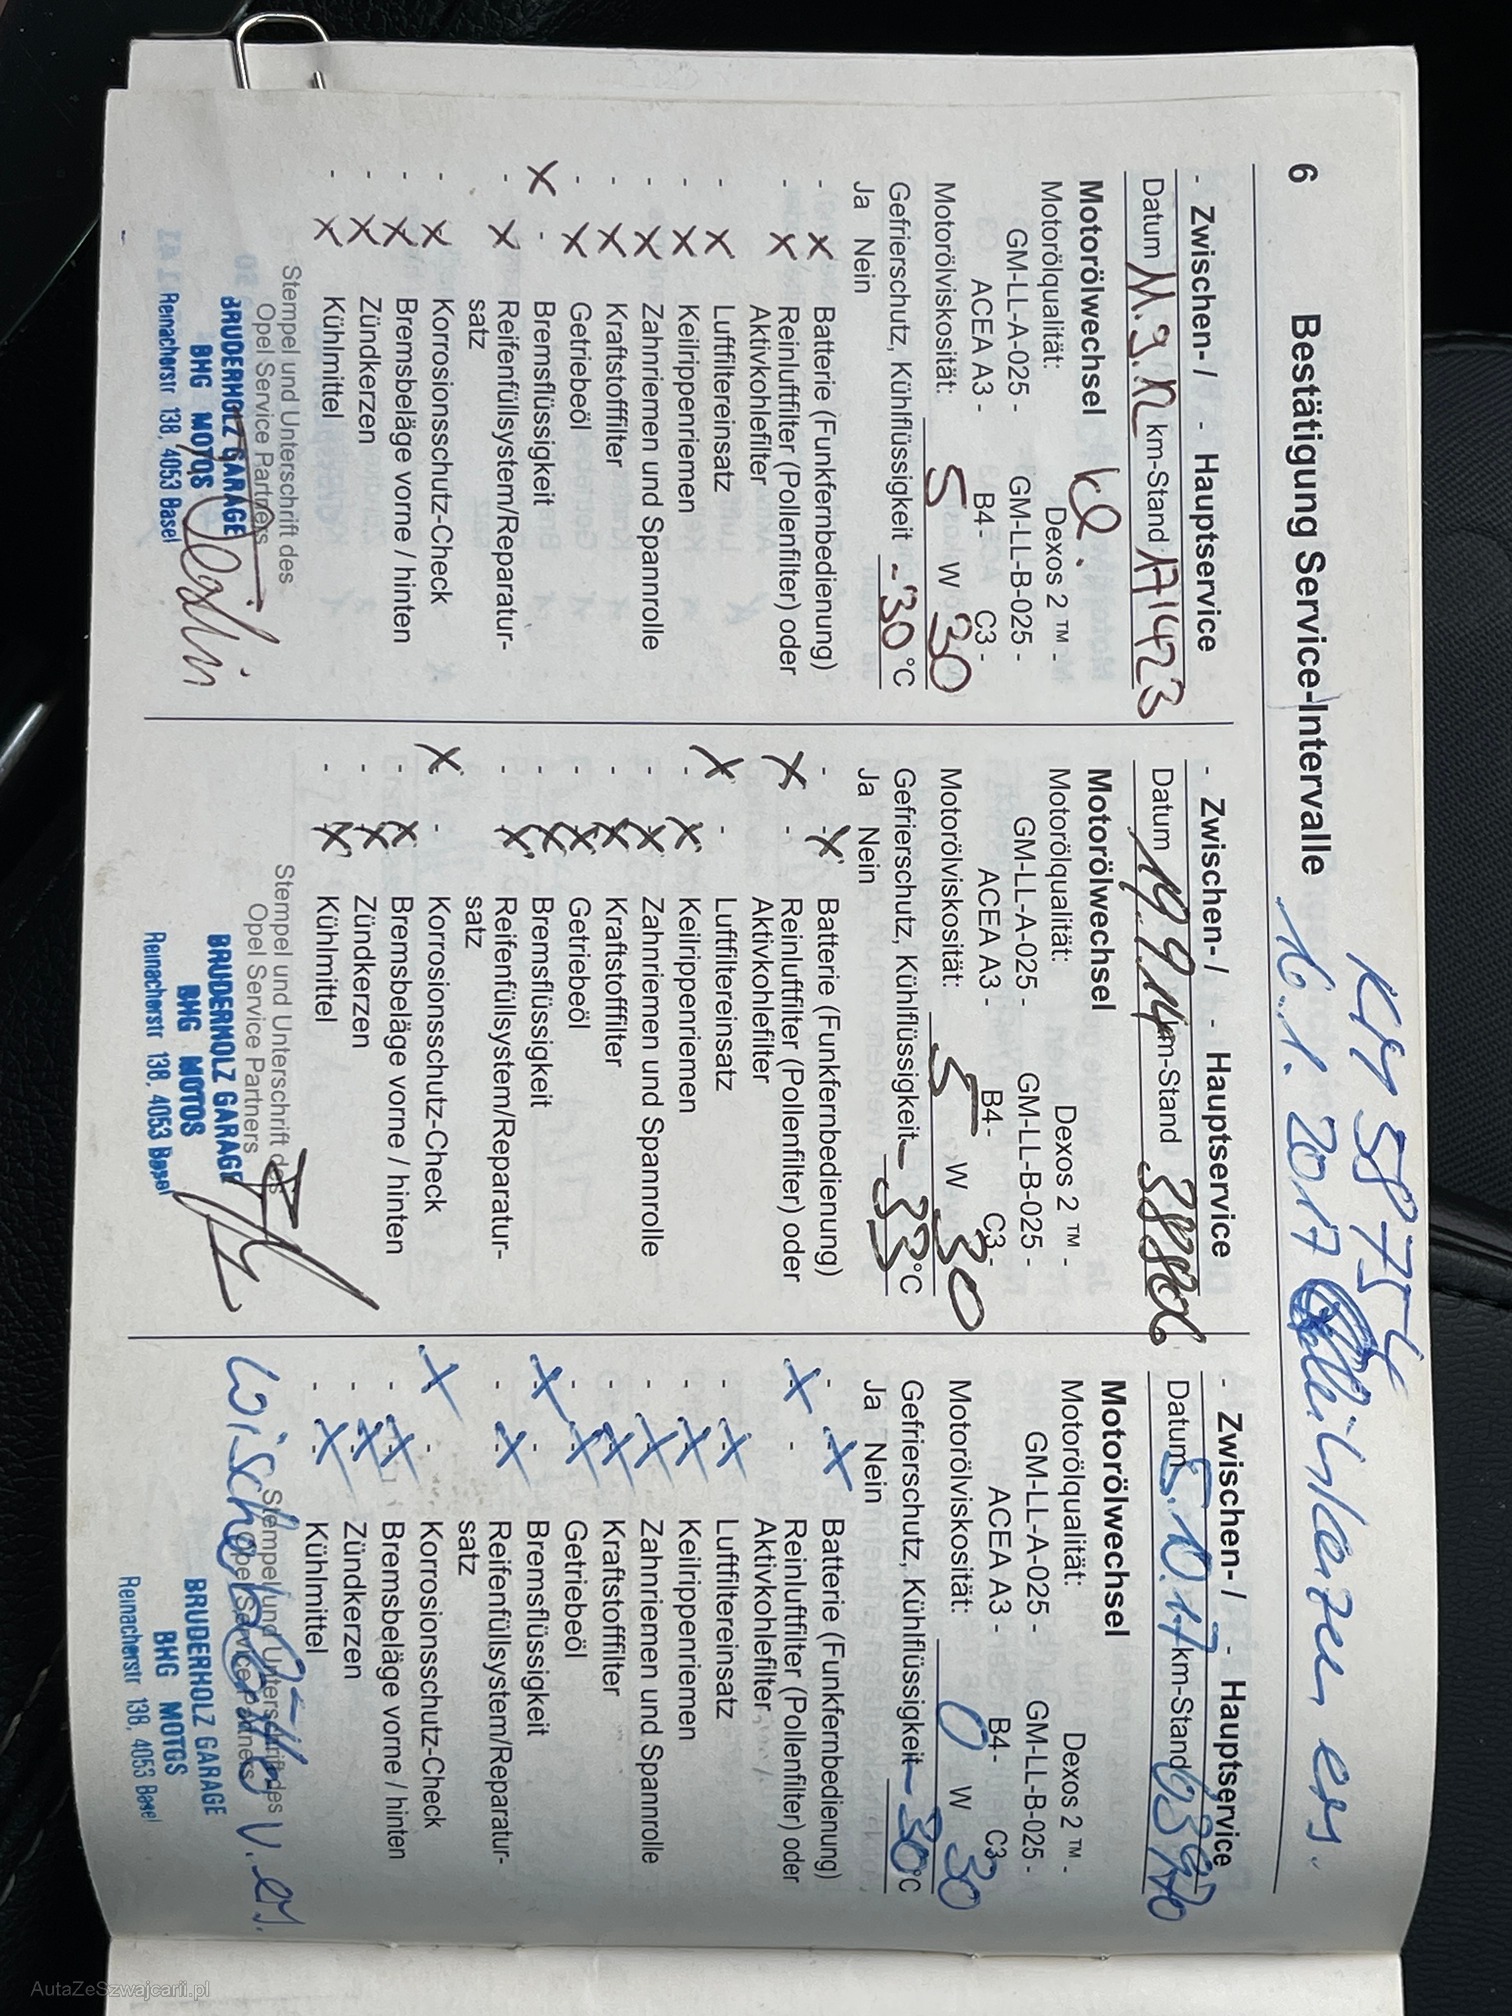 6 Bestätigung Service-Intervalle
KM 58 754
16.1.2017 Keilriemen ers.
- Zwischen- / - Hauptservice
Datum 11.9.12 km-Stand 171423
Motorölwechsel
Motorölqualität: Dexos 2 ™ -
GM-LL-A-025 - GM-LL-B-025 -
ACEA A3 - B4- C3 -
Motorölviskosität: 5 W 30
Gefrierschutz, Kühlflüssigkeit -30 °C
Ja Nein
- X Batterie (Funkfernbedienung)
- X Reinluftfilter (Pollenfilter) oder
Aktivkohlefilter
- X Luftfiltereinsatz
- X Keilrippenriemen
- X Zahnriemen und Spannrolle
- X Kraftstofffilter
- X Getriebeöl
X - Bremsflüssigkeit
- X Reifenfüllsystem/Reparatur-
satz
- X Korrosionsschutz-Check
- X Bremsbeläge vorne / hinten
- X Zündkerzen
- X Kühlmittel
Stempel und Unterschrift des
Opel Service Partners
BRUDERHOLZ GARAGE
BHG MOTOS
Reinacherstr 138, 4053 Basel
- Zwischen- / - Hauptservice
Datum 19.9.14 km-Stand 38806
Motorölwechsel
Motorölqualität: Dexos 2 ™ -
GM-LL-A-025 - GM-LL-B-025 -
ACEA A3 - B4- C3 -
Motorölviskosität: 5 W 30
Gefrierschutz, Kühlflüssigkeit -33 °C
Ja Nein
- X Batterie (Funkfernbedienung)
X - Reinluftfilter (Pollenfilter) oder
Aktivkohlefilter
X - Luftfiltereinsatz
- X Keilrippenriemen
- X Zahnriemen und Spannrolle
- X Kraftstofffilter
- X Getriebeöl
- X Bremsflüssigkeit
- X Reifenfüllsystem/Reparatur-
satz
X - Korrosionsschutz-Check
- X Bremsbeläge vorne / hinten
- X Zündkerzen
- X Kühlmittel
Stempel und Unterschrift des
Opel Service Partners
BRUDERHOLZ GARAGE
BHG MOTOS
Reinacherstr 138, 4053 Basel
- Zwischen- / - Hauptservice
Datum 5.10.17 km-Stand 63970
Motorölwechsel
Motorölqualität: Dexos 2 ™ -
GM-LL-A-025 - GM-LL-B-025 -
ACEA A3 - B4- C3 -
Motorölviskosität: 0 W 30
Gefrierschutz, Kühlflüssigkeit -30 °C
Ja Nein
- X Batterie (Funkfernbedienung)
X - Reinluftfilter (Pollenfilter) oder
Aktivkohlefilter
- X Luftfiltereinsatz
- X Keilrippenriemen
- X Zahnriemen und Spannrolle
- X Kraftstofffilter
- X Getriebeöl
X - Bremsflüssigkeit
- X Reifenfüllsystem/Reparatur-
satz
X - Korrosionsschutz-Check
- X Bremsbeläge vorne / hinten
- X Zündkerzen
- X Kühlmittel
Stempel und Unterschrift des
Opel Service Partners
Wischblätter v. ers.
BRUDERHOLZ GARAGE
BHG MOTOS
Reinacherstr 138, 4053 Basel
AutaZeSzwajcarii.pl